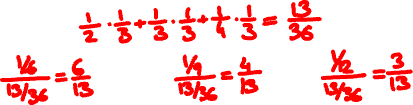 1/2 · 1/3 + 1/3 · 1/3 + 1/4 · 1/3 = 13/36
(1/6)/(13/36) = 6/13 (1/9)/(13/36) = 4/13 (1/12)/(13/36) = 3/13